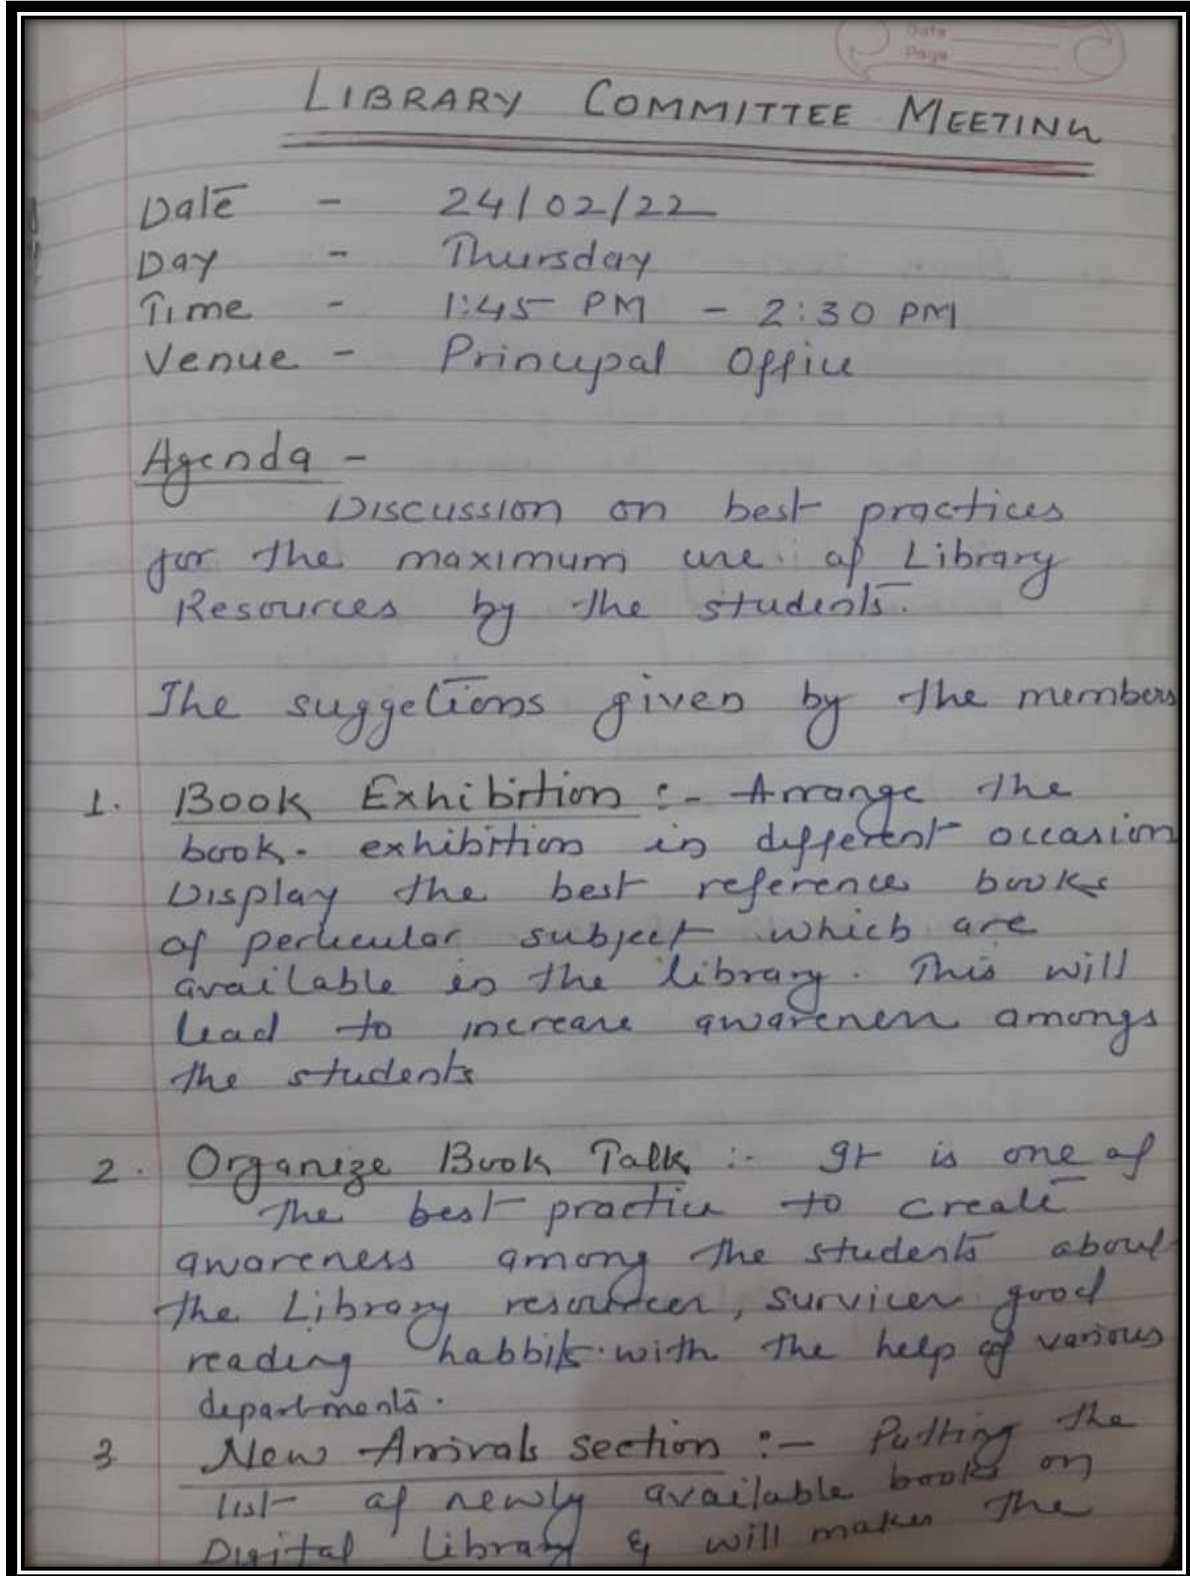 Date
Page
LIBRARY COMMITTEE MEETING
Date - 24/02/22
Day - Thursday
Time - 1:45 PM - 2:30 PM
Venue - Principal Office
Agenda -
Discussion on best practices
for the maximum use of Library
Resources by the students.
The suggetions given by the members
1. Book Exhibition :- Arrange the
book. exhibition in different occasion
Display the best reference books
of perticular subject which are
available in the library. This will
lead to increase awareness amongs
the students
2. Organize Book Talk :- It is one of
the best practice to create
awareness among the students about
the Library resources, survices good
reading habbits with the help of various
departments.
3 New Arrivals section :- Putting the
list of newly available books on
Digital Library & will makes the